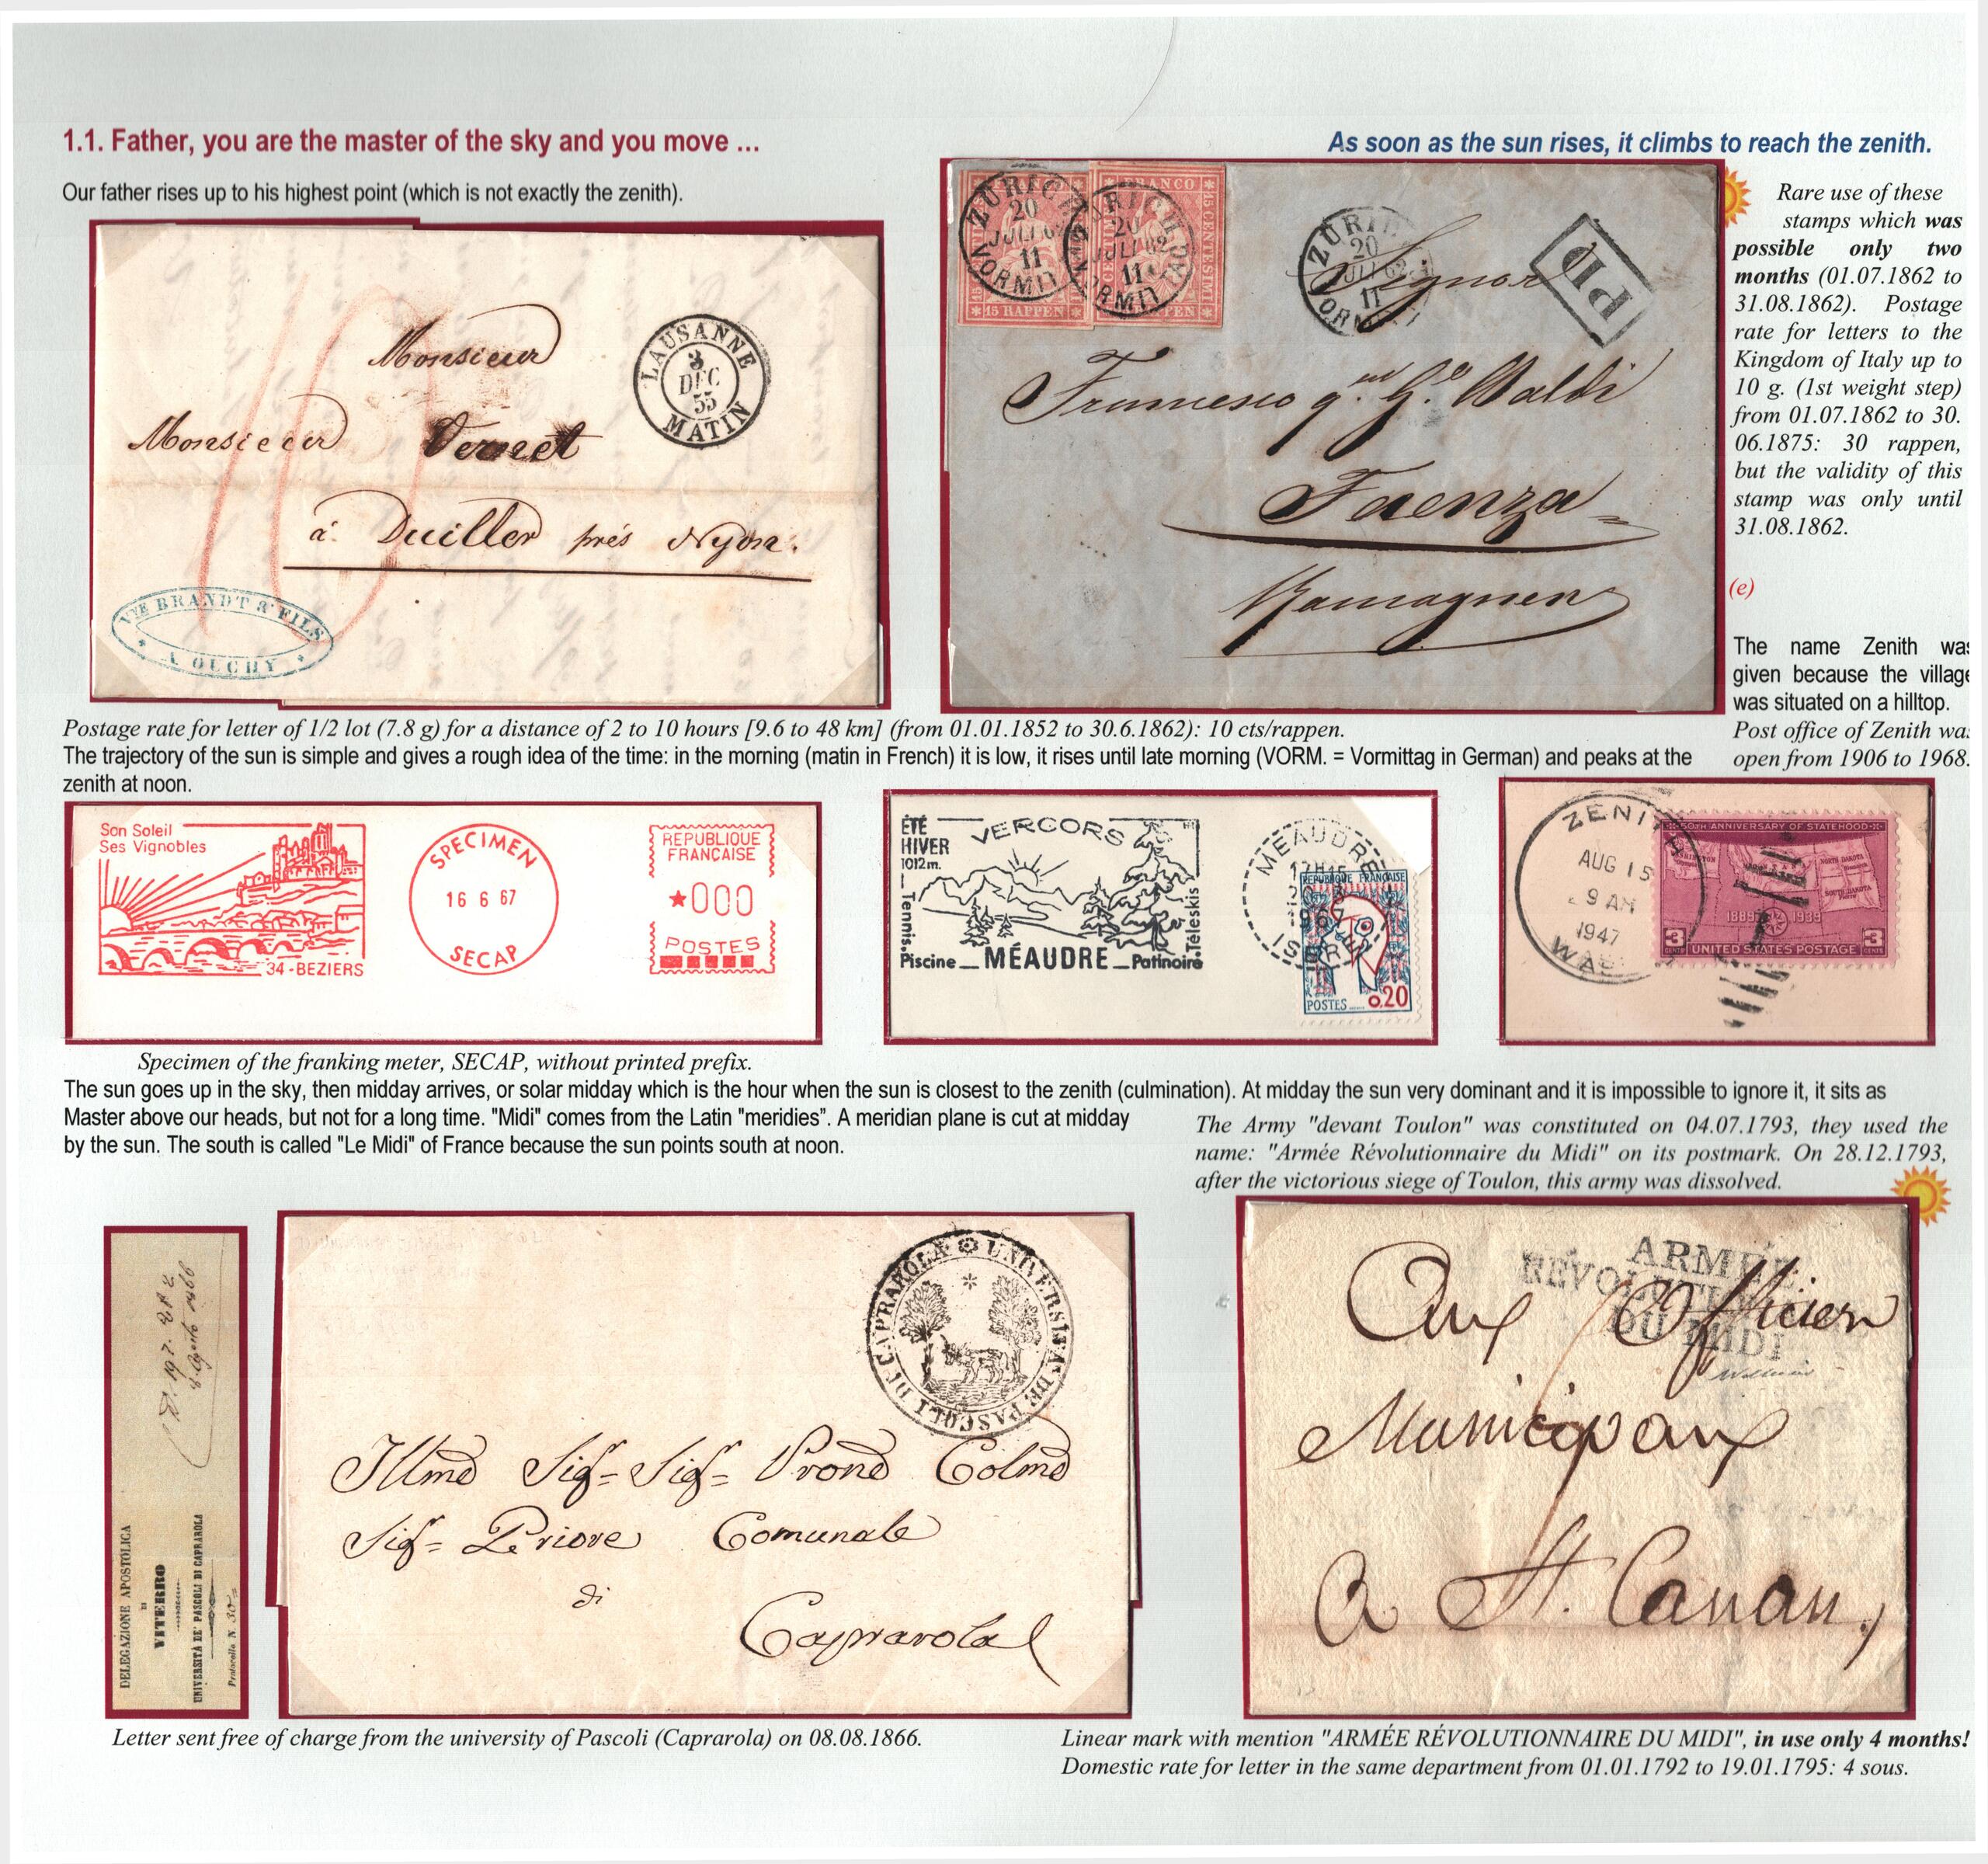 1.1. Father, you are the master of the sky and you move ...
As soon as the sun rises, it climbs to reach the zenith.
Our father rises up to his highest point (which is not exactly the zenith).
Monsieur
Monsieur Vernet
à Duiller près Nyon.
10
LAUSANNE
3
DEC
55
MATIN
VVE BRANDT & FILS
A OUCHY
ZÜRICH
20
JULI 62
11
VORMIT
ZÜRICH
20
JULI 62
11
VORMIT
FRANCO
15 CENTESIMI
15 RAPPEN
ZÜRICH
20
JULI 62
11
VORMIT
PD
Signor
Francesco q.m G.e Waldi
Faenza
Romagnen
Rare use of these
stamps which was
possible only two
months (01.07.1862 to
31.08.1862). Postage
rate for letters to the
Kingdom of Italy up to
10 g. (1st weight step)
from 01.07.1862 to 30.
06.1875: 30 rappen,
but the validity of this
stamp was only until
31.08.1862.
(e)
The name Zenith was
given because the village
was situated on a hilltop.
Post office of Zenith was
open from 1906 to 1968.
Postage rate for letter of 1/2 lot (7.8 g) for a distance of 2 to 10 hours [9.6 to 48 km] (from 01.01.1852 to 30.6.1862): 10 cts/rappen.
The trajectory of the sun is simple and gives a rough idea of the time: in the morning (matin in French) it is low, it rises until late morning (VORM. = Vormittag in German) and peaks at the
zenith at noon.
Son Soleil
Ses Vignobles
34-BEZIERS
SPECIMEN
16 6 67
SECAP
REPUBLIQUE
FRANCAISE
★000
POSTES
ÉTÉ
HIVER
1012m.
VERCORS
Tennis.
Piscine _ MÉAUDRE _ Patinoire
Téleskis
MEAUDRE
ISERE
REPUBLIQUE FRANÇAISE
POSTES
0,20
ZENITH
AUG 15
9 AM
1947
WASH
50TH ANNIVERSARY OF STATEHOOD
WASHINGTON
NORTH DAKOTA
SOUTH DAKOTA
1889 1939
3 CENTS UNITED STATES POSTAGE 3 CENTS
Specimen of the franking meter, SECAP, without printed prefix.
The sun goes up in the sky, then midday arrives, or solar midday which is the hour when the sun is closest to the zenith (culmination). At midday the sun very dominant and it is impossible to ignore it, it sits as
Master above our heads, but not for a long time. "Midi" comes from the Latin "meridies”. A meridian plane is cut at midday
by the sun. The south is called "Le Midi" of France because the sun points south at noon.
The Army "devant Toulon" was constituted on 04.07.1793, they used the
name: "Armée Révolutionnaire du Midi" on its postmark. On 28.12.1793,
after the victorious siege of Toulon, this army was dissolved.
DELEGAZIONE APOSTOLICA
DI
VITERBO
UNIVERSITÀ DE' PASCOLI DI CAPRAROLA
Protocollo N. 30
8 Agosto 1866
UNIVERSITA DE PASCOLI DI CAPRAROLA
Illmo Sigr Sigr Prone Colmo
Sigr Priore Comunale
di
Caprarola
ARMÉE
REVOLUTION
DU MIDI
Aux Officiers
Municipaux
A St. Canan,
Letter sent free of charge from the university of Pascoli (Caprarola) on 08.08.1866.
Linear mark with mention "ARMÉE RÉVOLUTIONNAIRE DU MIDI", in use only 4 months!
Domestic rate for letter in the same department from 01.01.1792 to 19.01.1795: 4 sous.